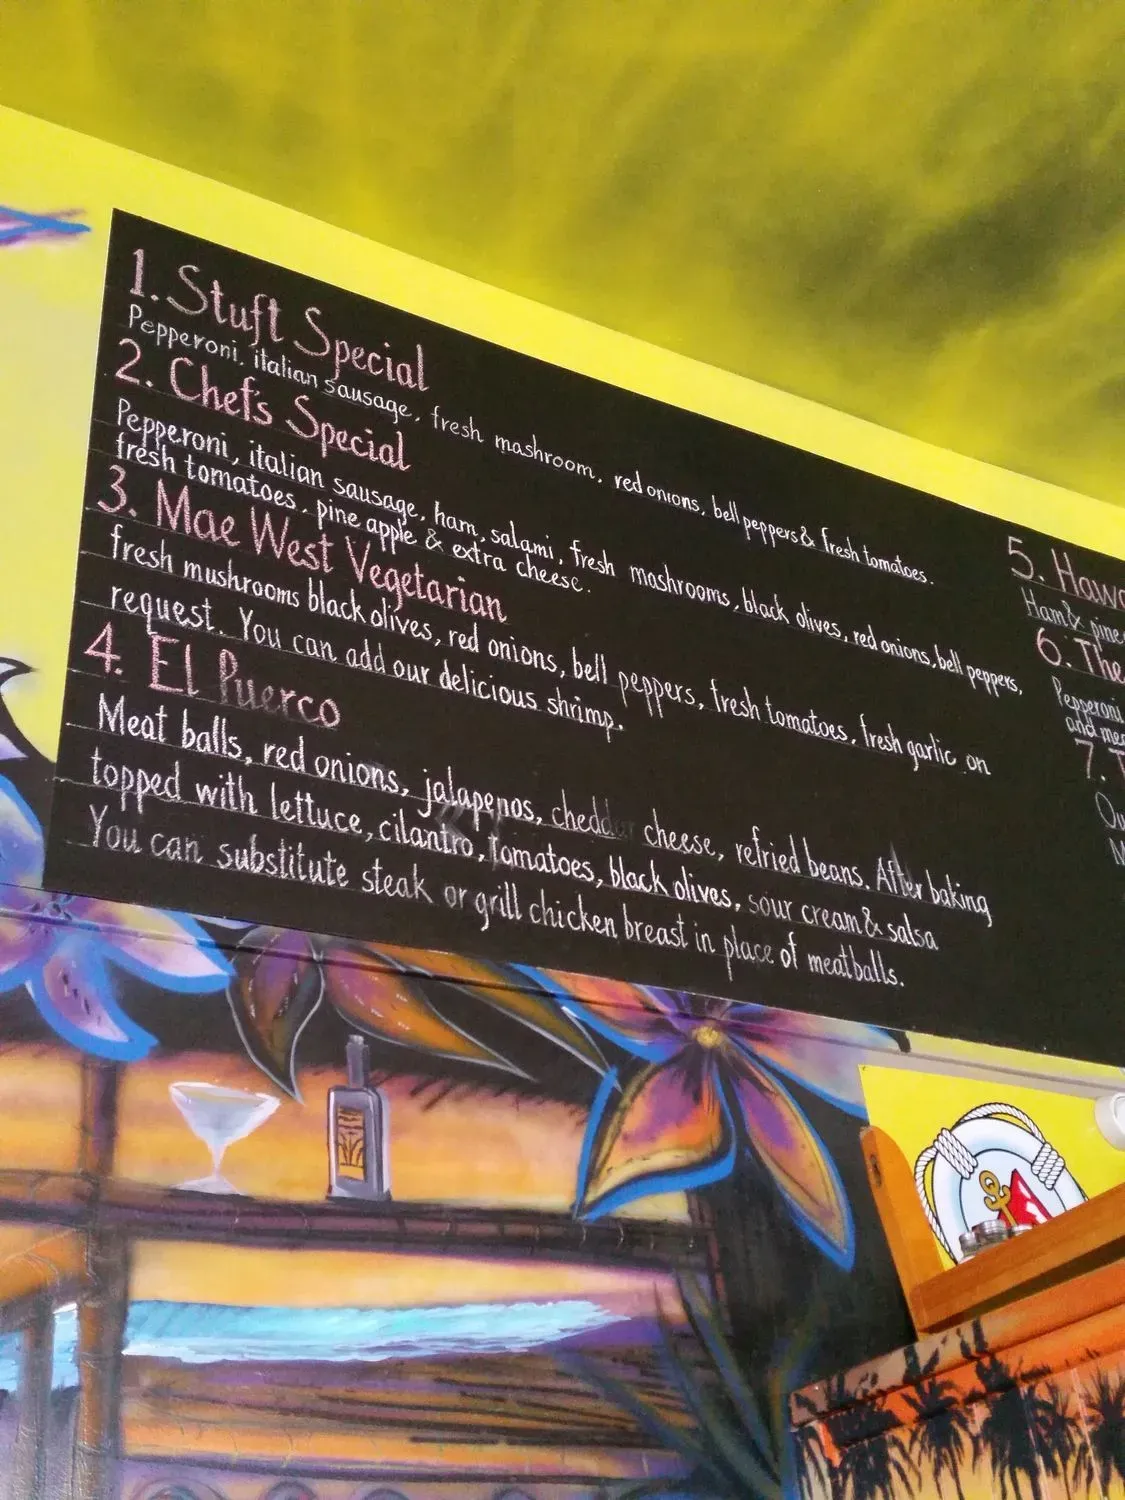 1. Stuft Special
Pepperoni, italian sausage, fresh mashroom, red onions, bell peppers & fresh tomatoes.
2. Chef's Special
Pepperoni, italian sausage, ham, salami, fresh mashrooms, black olives, red onions, bell peppers,
fresh tomatoes, pine apple & extra cheese.
3. Mae West Vegetarian
fresh mushrooms black olives, red onions, bell peppers, fresh tomatoes, fresh garlic on
request. You can add our delicious shrimp.
4. El Puerco
Meat balls, red onions, jalapenos, cheddar cheese, refried beans. After baking
topped with lettuce, cilantro, tomatoes, black olives, sour cream & salsa
You can substitute steak or grill chicken breast in place of meatballs.
5.
Ham & pine
6. The
Pepperoni
and
7.